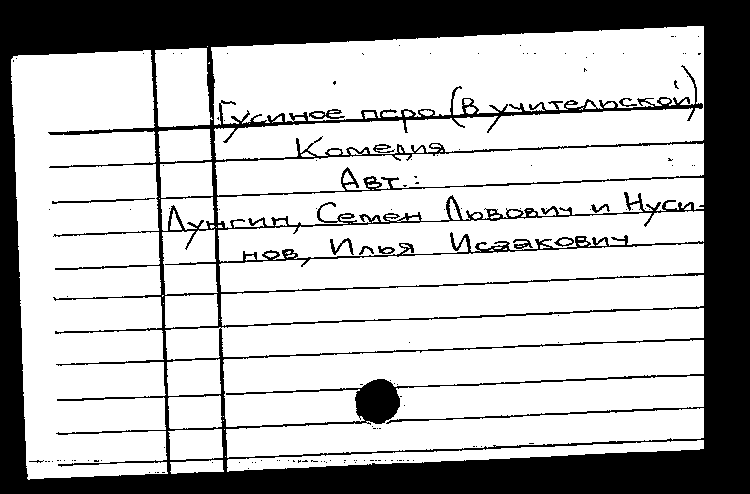 Гусиное перо. (В учительской)
Комедия
Авт.:
Лунгин, Семен Львович и Нуси-
нов, Илья Исаакович